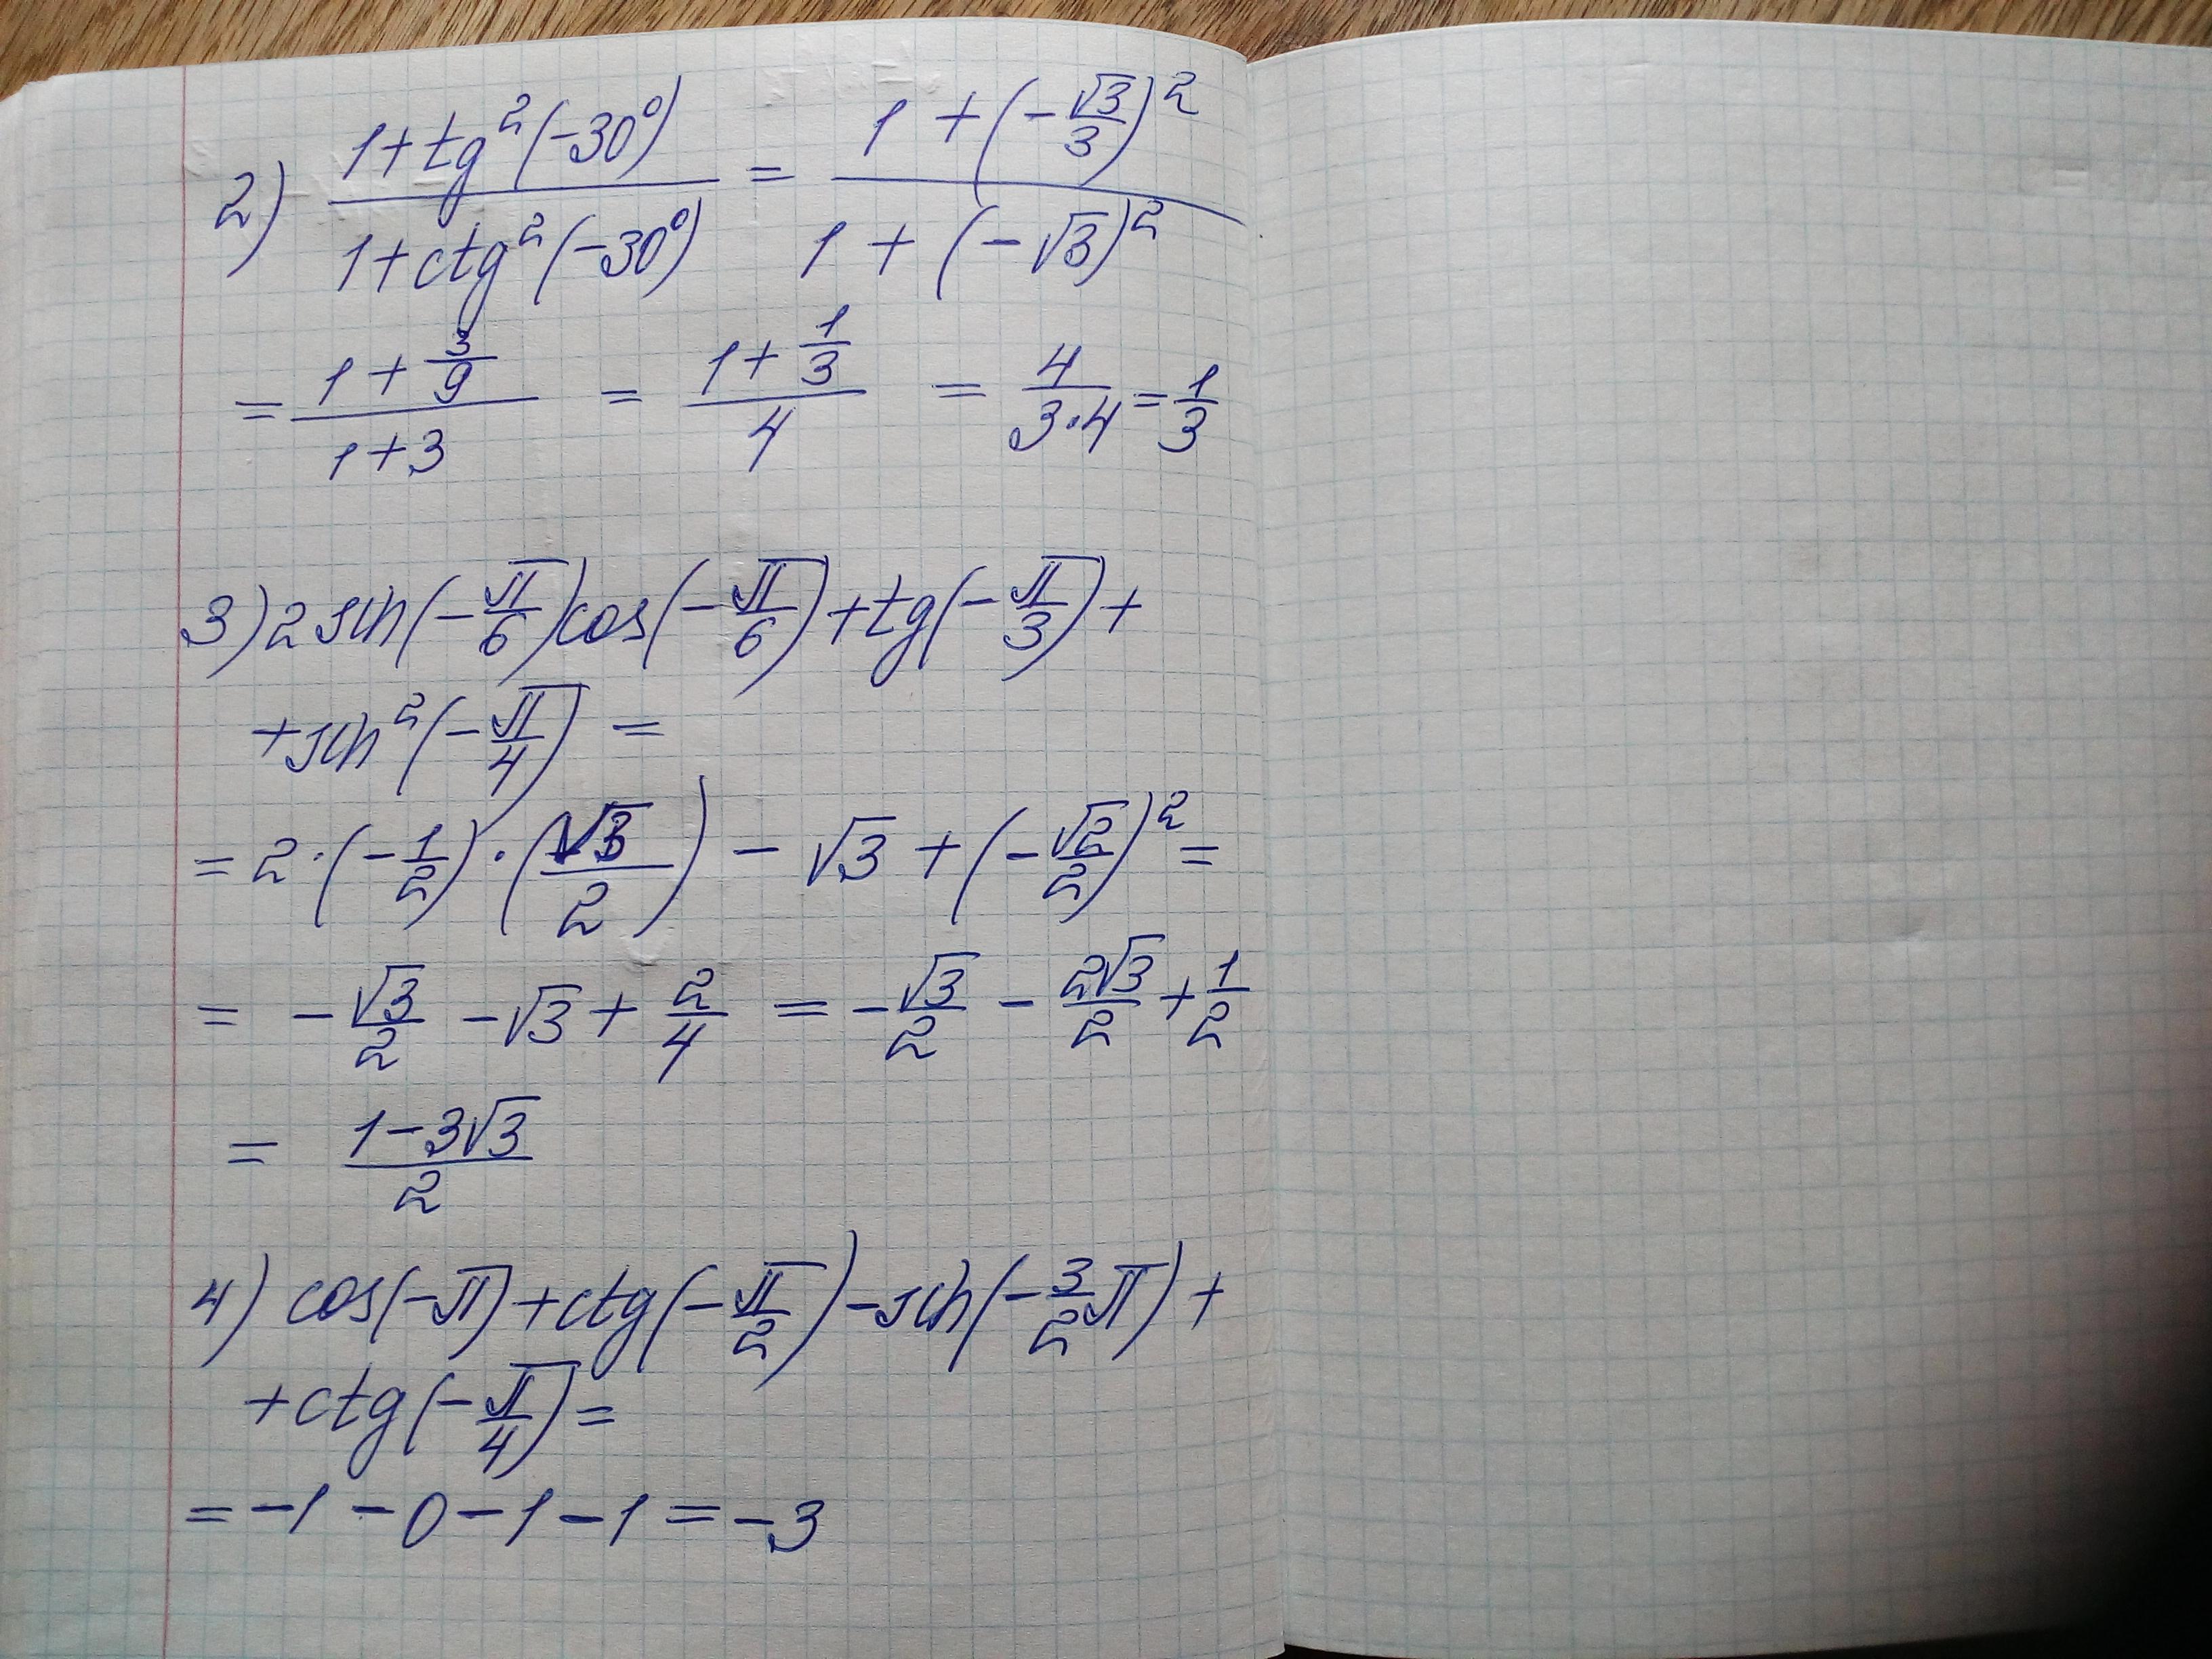 2) (1+tg²(-30°))/(1+ctg²(-30°)) = (1+(-√3/3)²)/(1+(-√3)²)
= (1+3/9)/(1+3) = (1+1/3)/4 = 4/(3·4) = 1/3
3) 2 sin(-π/6)cos(-π/6)+tg(-π/3)+
+sin²(-π/4) =
= 2·(-1/2)·(√3/2) - √3 + (-√2/2)² =
= -√3/2 - √3 + 2/4 = -√3/2 - 2√3/2 + 1/2
= (1-3√3)/2
4) cos(-π)+ctg(-π/2)-sin(-3/2π)+
+ctg(-π/4)=
= -1 - 0 - 1 - 1 = -3